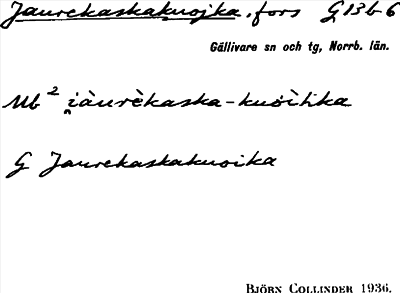 Jaurekaskakuojka, fors G13b6
Gällivare sn och tg, Norrb. län.
Ub² i̯àurèkaska-kuòi̯hka
G Jaurekaskakuoika
BJÖRN COLLINDER 1936.